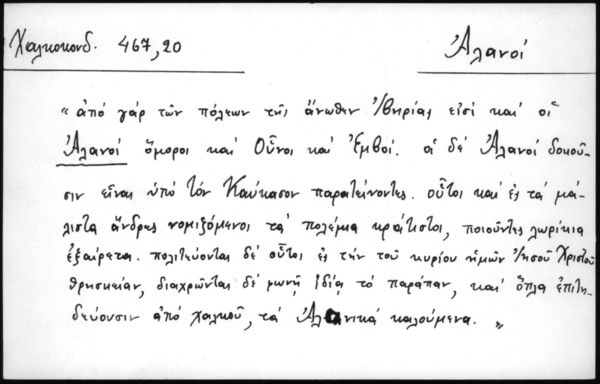 Χαλκοκονδ. 467,20
Ἀλανοί
"ἀπό γάρ τῶν πόλεων τῆς ἄνωθεν Ἰβηρίας εἰσί καί οἱ
Ἀλανοί ὅμοροι καί Οὗνοι καί Ἐμβοί. οἱ δέ Ἀλανοί δοκοῦ-
σιν εἶναι ὑπό τόν Καύκασον παρατείνοντες. οὗτοι καί ἐς τά μά-
λιστα ἄνδρες νομιζόμενοι τά πολέμια κράτιστοι, ποιοῦντες λωρίκια
ἐξαίρετα. πολιτεύονται δέ οὗτοι ἐς τήν τοῦ κυρίου ἡμῶν Ἰησοῦ Χριστοῦ
θρησκείαν, διαχρῶνται δέ φωνῇ ἰδίᾳ τό παράπαν, καί ὅπλα ἐπιτη-
δεύουσιν ἀπό χαλκοῦ, τά Ἀλανικά καλούμενα."